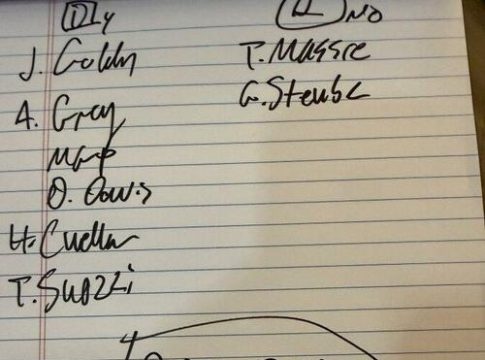 D y
J. Golden
A. Gray
MGP
D. Davis
H. Cuellar
T. Suozzi
R No
T. Massie
G. Steube
4